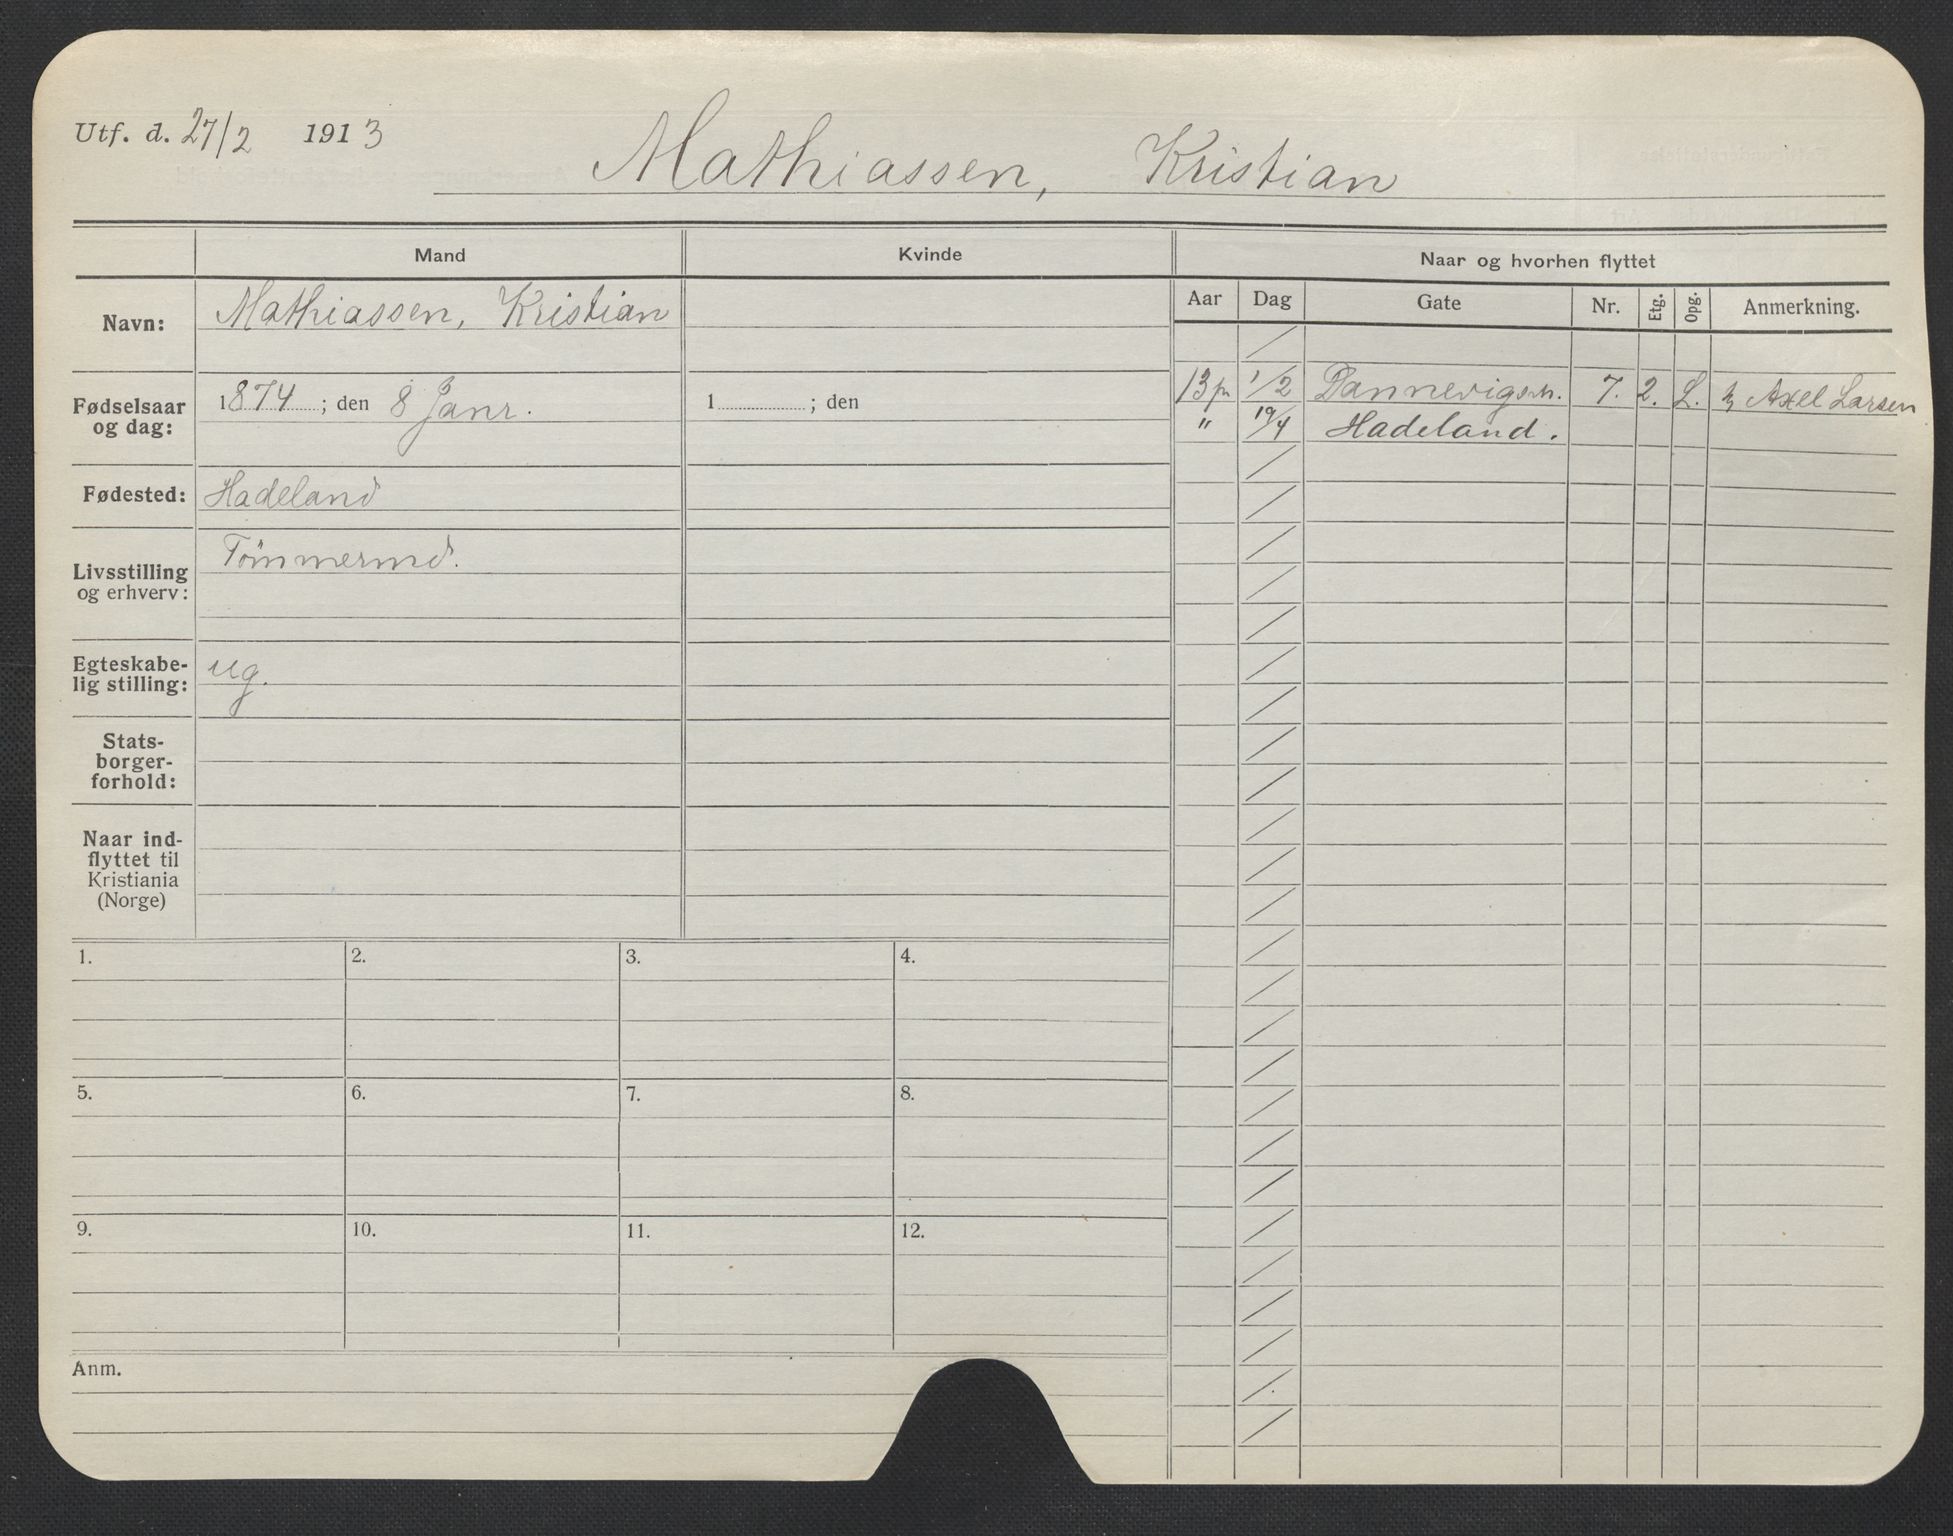 Utf. d. 27/2 1913
Mathiassen, Kristian
Mand
Kvinde
Naar og hvorhen flyttet
Aar Dag Gate Nr. Etg. Opg. Anmerkning.
Navn: Mathiassen, Kristian
Fødselsaar og dag: 1874; den 8 Janr.
1 ; den
13 1/2 Dannevigsv. 7. 2. L. Axel Larsen
" 19/4 Hadeland.
Fødested: Hadeland
Livsstilling og erhverv: Tömmermd.
Egteskabe-
lig stilling: ug.
Stats-
borger-
forhold:
Naar ind-
flyttet til
Kristiania
(Norge)
1. 2. 3. 4.
5. 6. 7. 8.
9. 10. 11. 12.
Anm.